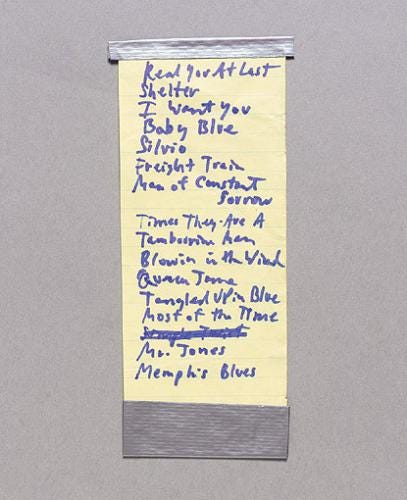 Real You At Last
Shelter
I Want You
Baby Blue
Silvio
Freight Train
Man of Constant
Sorrow
Times They-Are A
Tambourin Man
Blowin in the Wind
Queen Jane
Tangled Up in Blue
Most of the Time
Mr. Jones
Memphis Blues